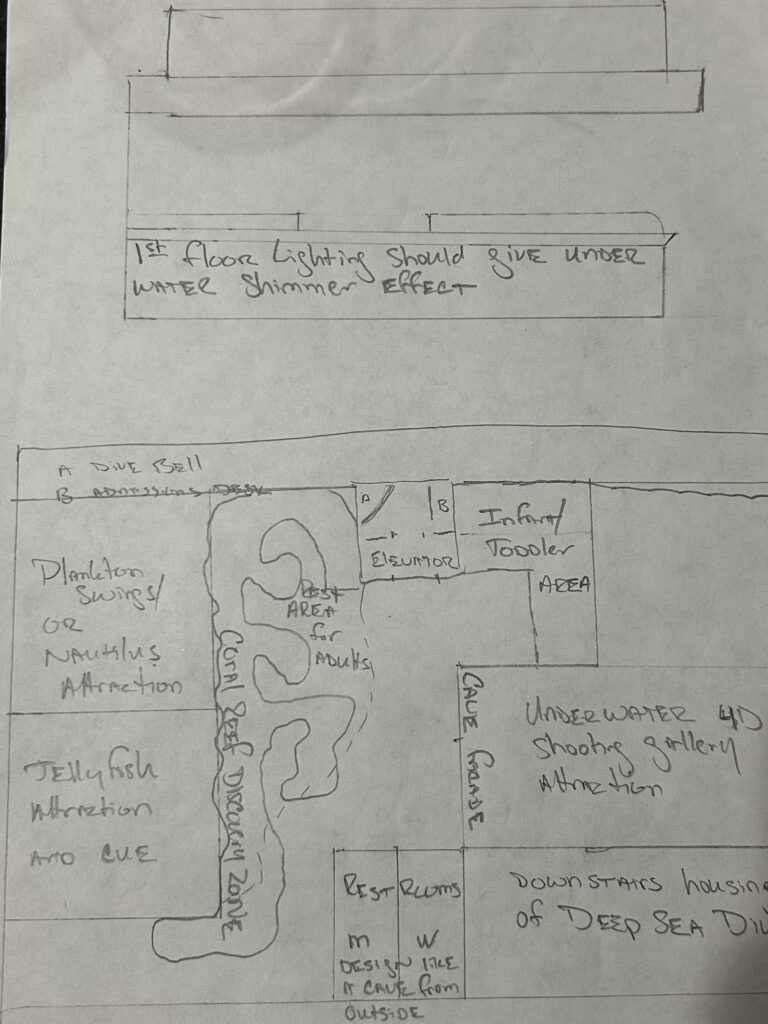 1st floor Lighting Should give UNDER
WATER Shimmer EFFECT
A DIVE BELL
B ADMISSIONS DESK
A
B
ELEVATOR
Infant/
Toddler
AREA
Plankton
Swings/
OR
NAUTILUS
Attraction
REST
AREA
for
ADULTS
CORAL REEF DISCOVERY ZONE
JELLYfish
Attraction
AND CUE
CAVE FACADE
UNDERWATER 4D
Shooting gallery
Attraction
REST ROOMS
M W
DESIGN LIKE
A CAVE from
OUTSIDE
DOWNSTAIRS housin
of DEEP SEA Di